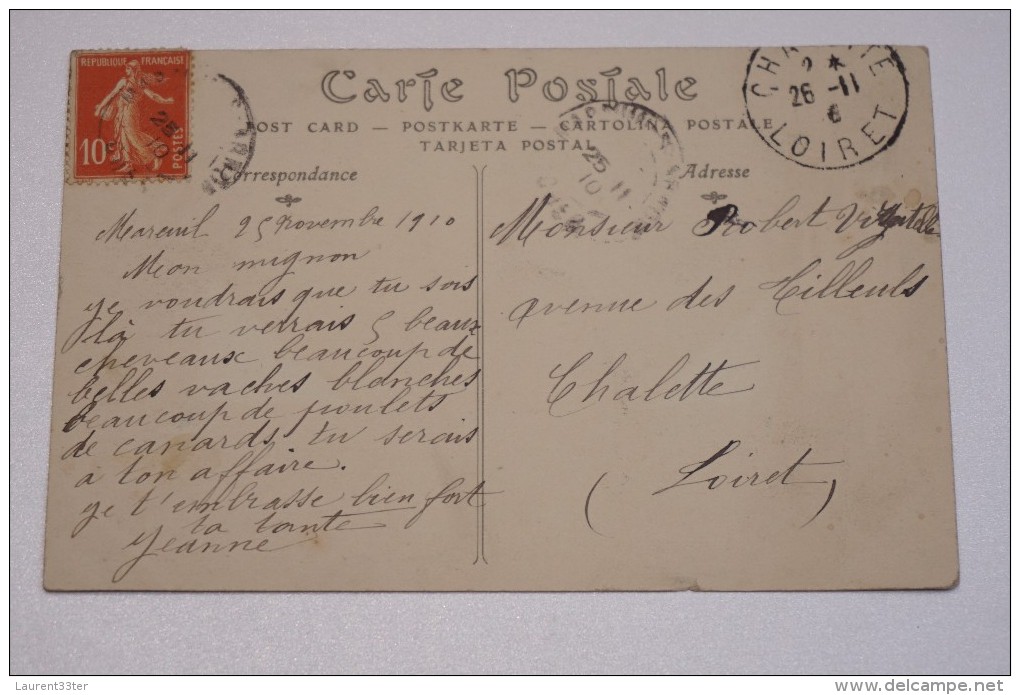 REPUBLIQUE FRANÇAISE
10
POSTES
Carte Postale
POST CARD – POSTKARTE – CARTOLINA POSTALE
TARJETA POSTAL
Correspondance
Adresse
25 11
10
25 11
10
2 *
26 -11
LOIRET
Mareuil 25 novembre 1910
Mon mignon
je voudrais que tu sois
là tu verrais 5 beaux
cheveaux beaucoup de
belles vaches blanches
beaucoup de poulets
de canards, tu serais
à ton affaire.
je t'embrasse bien fort
ta tante
Jeanne
Monsieur Robert
avenue des Tilleuls
Chalette
(Loiret)
Laurent33ter
delcampe.net